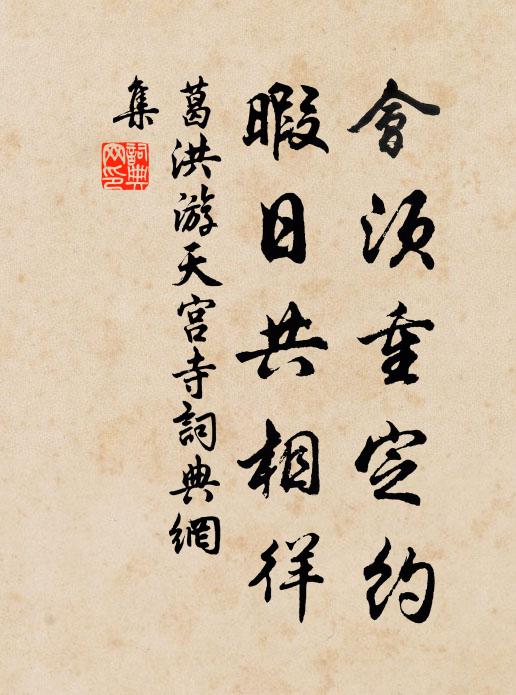 會須重定約
暇日共相徉
葛洪游天宫寺詞典網
集
詞典網印